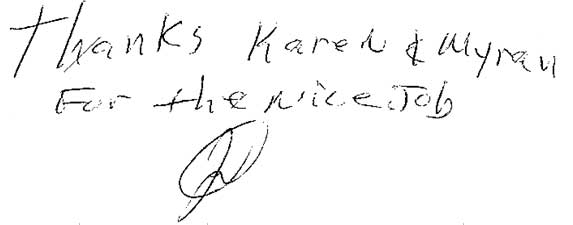 Thanks Karen & Myran
For the Nice Job